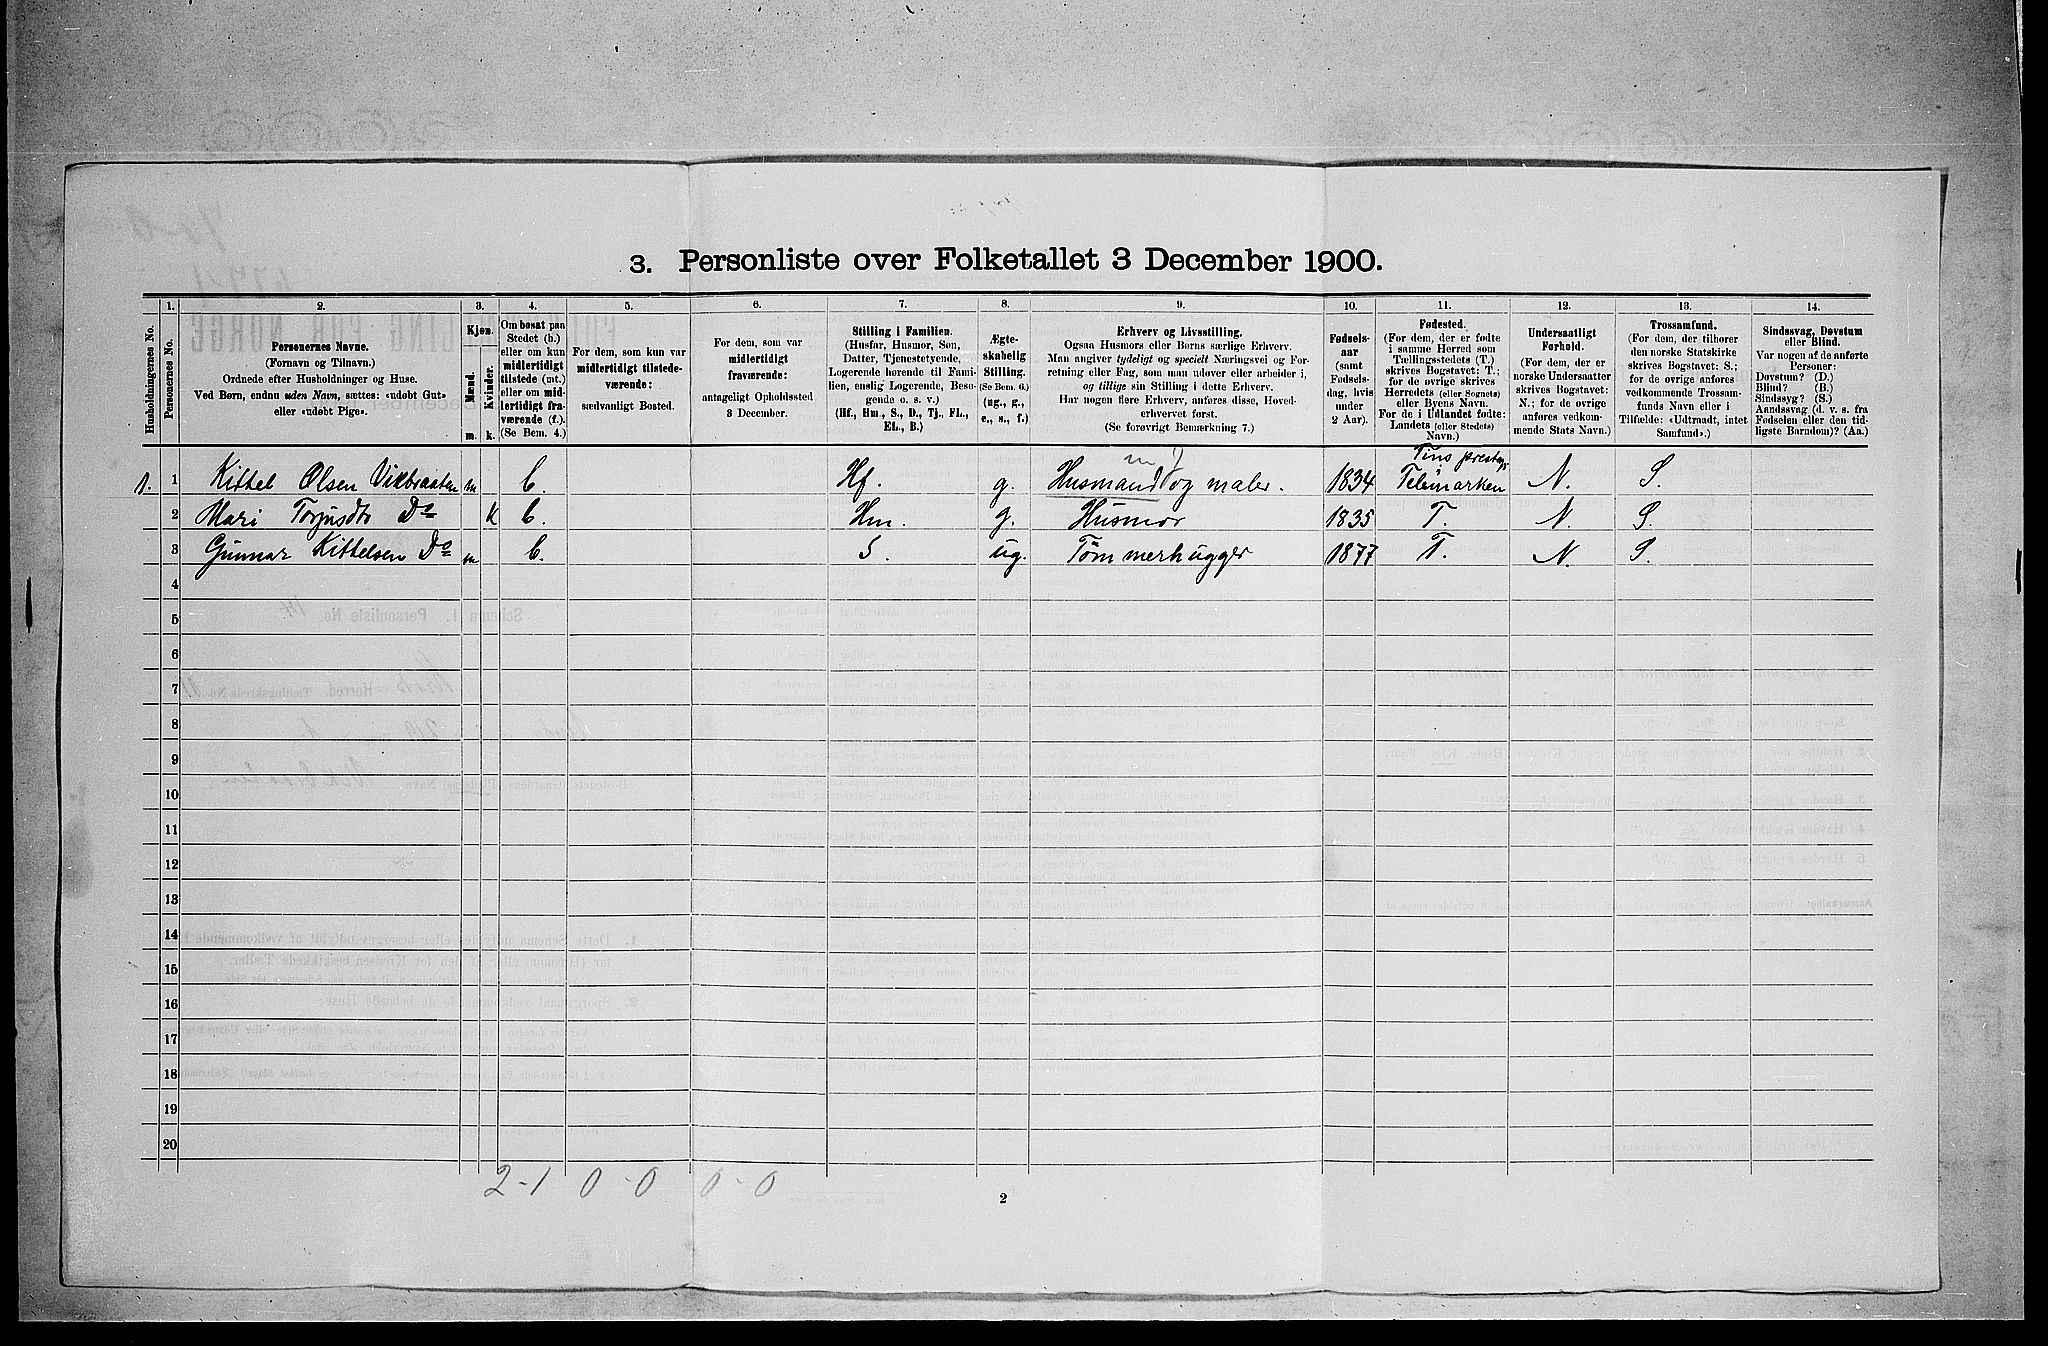 3. Personliste over Folketallet 3 December 1900.
Husholdningernes No.
1.
Personernes No.
2.
Personernes Navne.
(Fornavn og Tilnavn.)
Ordnede efter Husholdninger og Huse.
Ved Børn, endnu uden Navn, sættes: «udøbt Gut»
eller «udøbt Pige».
3.
Kjøn.
Mænd.
Kvinder.
m. k.
4.
Om bosat paa
Stedet (b.)
eller om kun
midlertidigt
tilstede (mt.)
eller om mid-
lertidigt fra-
værende (f.).
(Se Bem. 4.)
5.
For dem, som kun var
midlertidigt tilstede-
værende:
sædvanligt Bosted.
6.
For dem, som var
midlertidigt
fraværende:
antageligt Opholdssted
3 December.
7.
Stilling i Familien.
(Husfar, Husmor, Søn,
Datter, Tjenestetyende,
Logerende hørende til Fami-
lien, enslig Logerende, Besø-
gende o. s. v.)
(Hf., Hm., S., D., Tj., FL.,
EL., B.)
8.
Ægte-
skabelig
Stilling.
(Se Bem. 6.)
(ug., g.,
e., s., f.)
9.
Erhverv og Livsstilling.
Ogsaa Husmors eller Børns særlige Erhverv.
Man angiver tydeligt og specielt Næringsvei og For-
retning eller Fag, som man udover eller arbeider i,
og tillige sin Stilling i dette Erhverv.
Har nogen flere Erhverv, anføres disse, Hoved-
erhvervet først.
(Se forøvrigt Bemærkning 7.)
10.
Fødsels-
aar
(samt
Fødsels-
dag, hvis
under
2 Aar).
11.
Fødested.
(For dem, der er fødte
i samme Herred som
Tællingsstedets (T.)
skrives Bogstavet: T.;
for de øvrige skrives
Herredets (eller Sognets)
eller Byens Navn.
For de i Udlandet fødte:
Landets (eller Stedets)
Navn.)
12.
Undersaatligt
Forhold.
(For dem, der er
norske Undersaatter
skrives Bogstavet:
N.; for de øvrige
anføres vedkom-
mende Stats Navn.)
13.
Trossamfund.
(For dem, der tilhører
den norske Statskirke
skrives Bogstavet: S.;
for de øvrige anføres
vedkommende Trossam-
funds Navn eller i
Tilfælde: «Udtraadt, intet
Samfund».)
14.
Sindssvag, Døvstum
eller Blind.
Var nogen af de anførte
Personer:
Døvstum? (D.)
Blind? (B.)
Sindssyg? (S.)
Aandssvag (d. v. s. fra
Fødselen eller den tid-
ligste Barndom)? (Aa.)
1. 1 Kittel Olsen Vikbraaten m b. Hf. g. Husmand og maler. 1834 Tins prestg. Telemarken N. S.
2 Mari Torjusdtr Do k b. Hm. g. Husmor 1835 T. N. S.
3 Gunnar Kittelsen Do m b. S. ug. Tømmerhugger 1877 T. N. S.
4
5
6
7
8
9
10
11
12
13
14
15
16
17
18
19
20
2-1 0-0 0-0
2